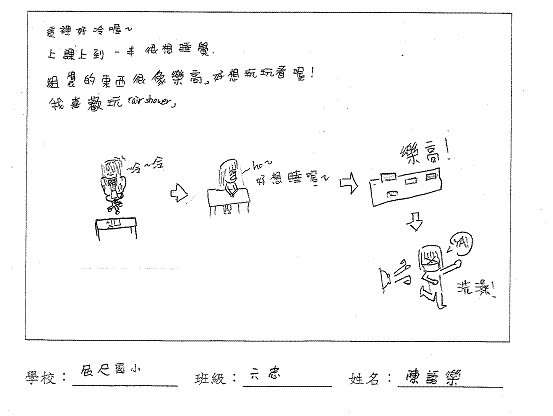 這裡好冷喔~
上課上到一半很想睡覺.
組裝的東西很像樂高,好想玩玩看喔!
我喜歡玩air shower,
冷~冷
ho~
好想睡喔~
樂高!
YA!
洗澡!
學校:屈尺國小 班級:六忠 姓名:陳語樂